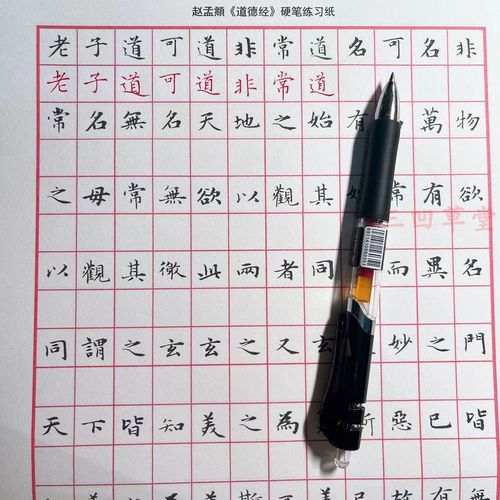 赵孟頫《道德经》硬笔练习纸
老子道可道非常道名可名非
老子道可道非常道
常名無名天地之始有萬物
之母常無欲以觀其妙常有欲
三凹草堂
以觀其徼此兩者同而異名
同謂之玄玄之又玄妙之門
天下皆知美之為斯惡已皆